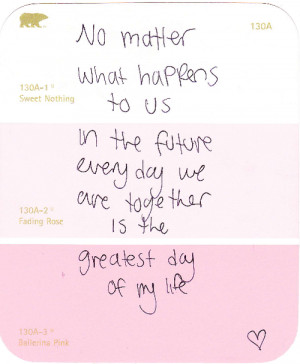 130A
No matter
what happens
to us
130A-1
Sweet Nothing
in the future
every day we
are together
is the
130A-2
Fading Rose
greatest day
of my life
130A-3
Ballerina Pink